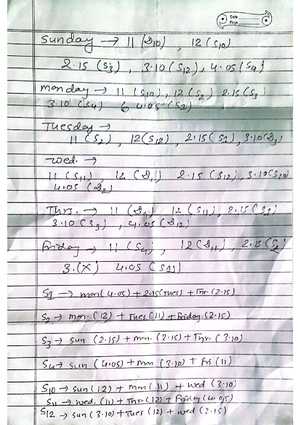 Date
Page
Sunday → 11 (S10) , 12 (S10)
2.15 (S3) , 3.10 (S12) , 4.05 (S4)
Monday → 11 (S10) , 12 (S2) , 2.15 (S3)
3.10 (S4) 4.05 (S1)
Tuesday →
11 (S2) , 12 (S12) , 2.15 (S1) , 3.10
Wed. →
11 (S11) , 12 2.15 (S12) , 3.10 (S10)
4.05
Thrs. → 11 12 (S11) , 2.15
3.10 (S3) , 4.05
Friday → 11 (S4) , 12 (S11) , 2.15
3. (X) 4.05
S1 → mon (4.05) + 2.15 (Tues) + Thr. (2.15)
S2 → mon (12) + Tues (11) + Friday (2.15)
S3 → Sun (2.15) + mon. (2.15) + Thr. (3.10)
S4 → Sun (4.05) + mon (3.10) + Fri (11)
S10 → Sun (12) + mon (11) + wed (3.10)
S11 → wed. (11) + Thr. (12) + Friday (4.05)
S12 → Sun (3.10) + Tues (12) + wed (2.15)